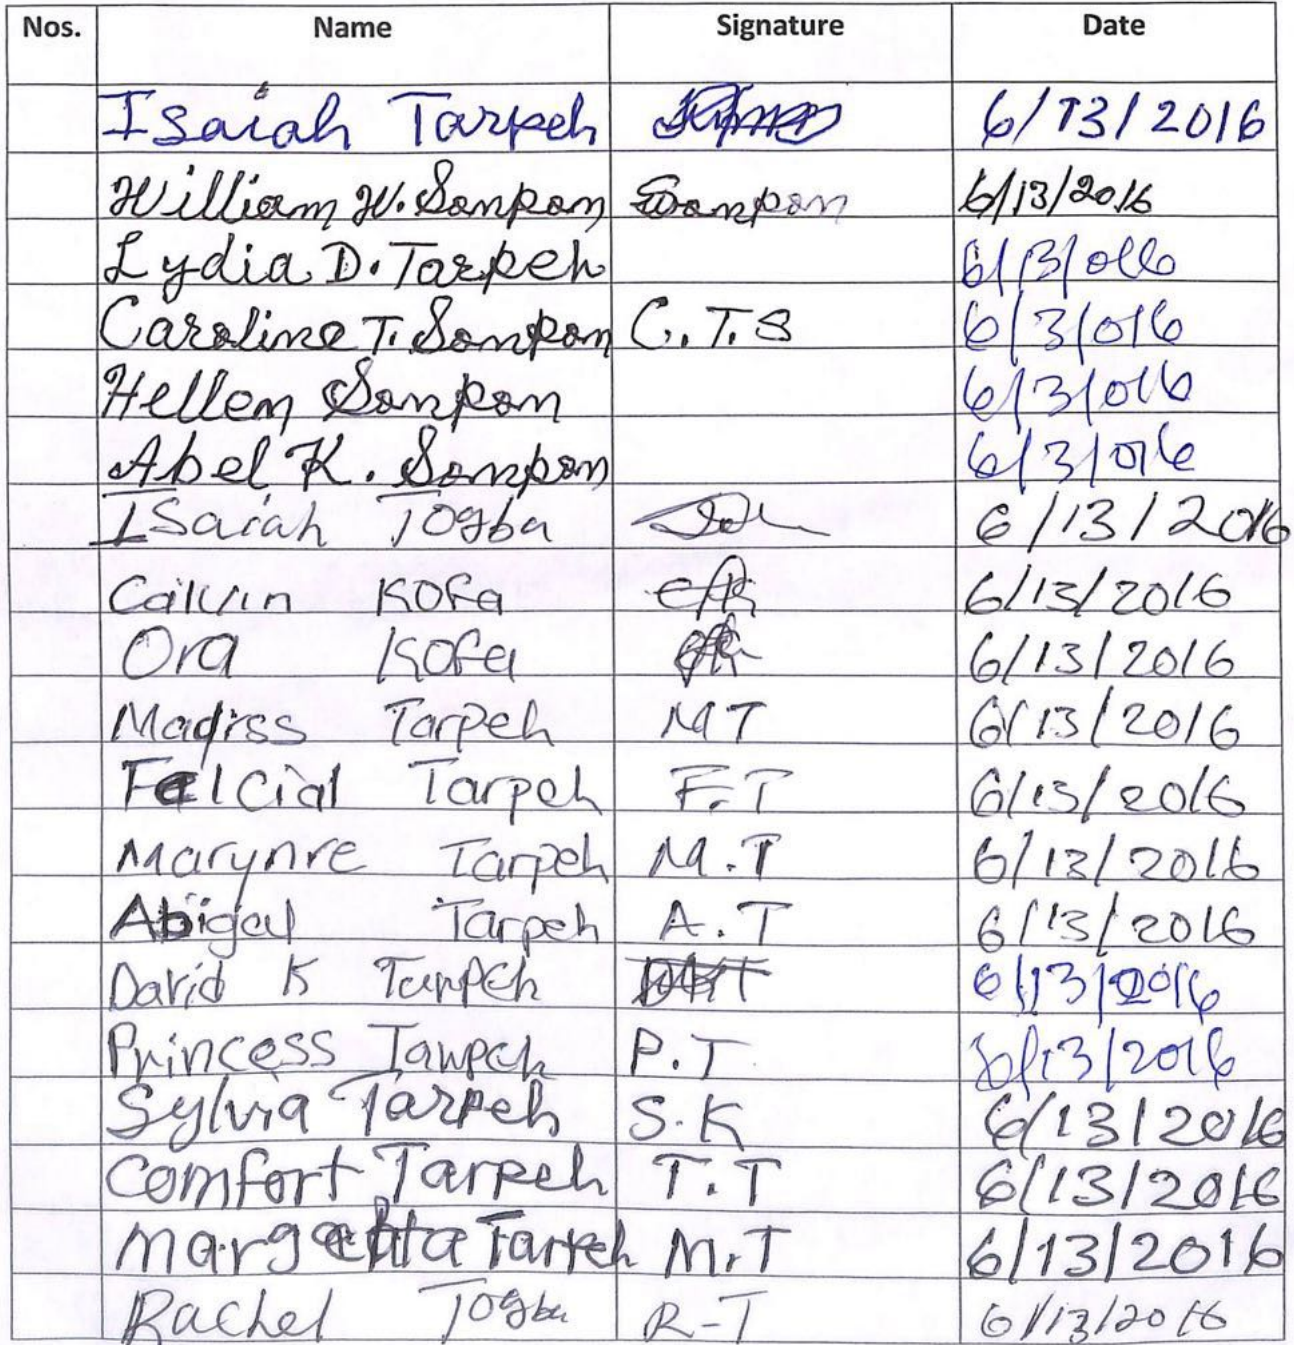 Nos. Name Signature Date
Isaiah Tarpeh 6/13/2016
William W. Sonpon Sonpon 6/13/2016
Lydia D. Tarpeh 6/13/016
Caroline T. Sonpon C.T.S 6/13/016
Hellen Sonpon 6/13/016
Abel K. Sonpon 6/13/016
Isaiah Togba 6/13/2016
Calvin Kofa CfK 6/13/2016
Ora Kofa 6/13/2016
Madiss Tarpeh MT 6/13/2016
Felcial Tarpeh F.T 6/13/2016
Marynre Tarpeh M.T 6/13/2016
Abigal Tarpeh A.T 6/13/2016
David K Tarpeh DKT 6/13/2016
Princess Tarpeh P.T 6/13/2016
Sylvia Tarpeh S.K 6/13/2016
Comfort Tarpeh T.T 6/13/2016
Margretta Tarpeh M.T 6/13/2016
Rachel Togba R-T 6/13/2016